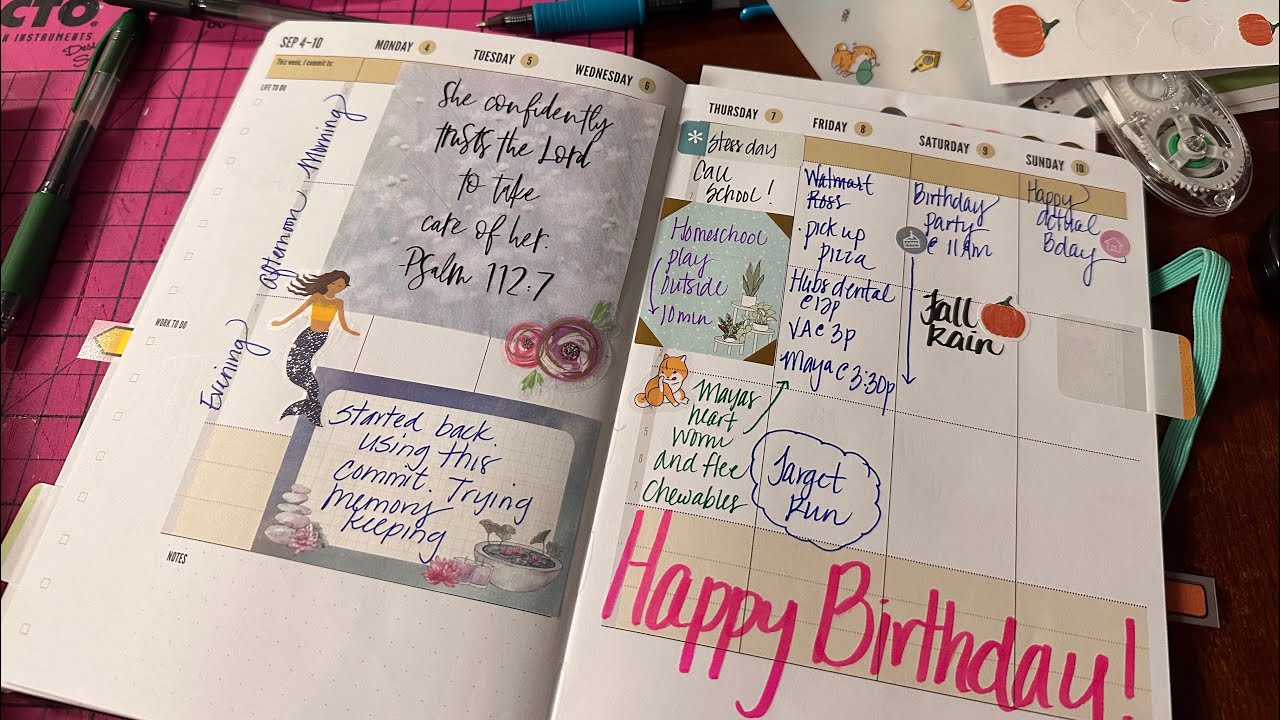 CTO
INSTRUMENTS
SEP 4-10
MONDAY 4
TUESDAY 5
WEDNESDAY 6
This week, I commit to:
LIFE TO DO
Mivning
afternoon
Evining
WORK TO DO
NOTES
She confidently
trusts the Lord
to take
care of her.
Psalm 112:7
Started back
using this
commit. Trying
memory
keeping
THURSDAY 7
FRIDAY 8
SATURDAY 9
SUNDAY 10
* Sters day
Call
School!
Homeschool
play
outside
10 min
Mayas
heart
worm
and flee
chewables
5
6
7
Walmart
Ross
· pick up
pizza
Hubs dental
@ 12p
VA @ 3p
Maya @ 3:30p
Target
Run
Birthday
party
@ 11am
Fall
Rain
Happy
actual
Bday
Happy Birthday!